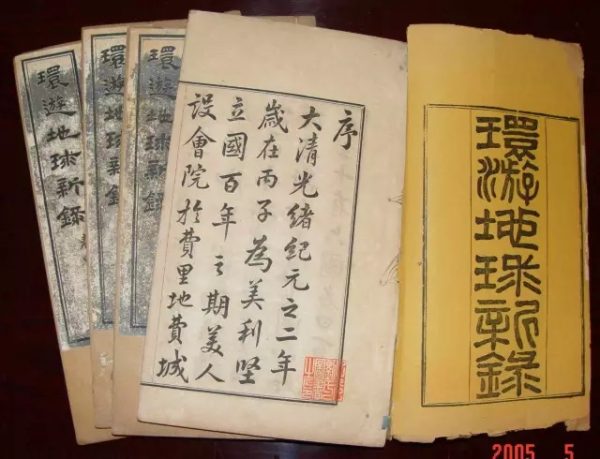 環游地球新錄
序
大清光緒紀元之二年
歲在丙子為美利堅
立國百年之期美人
設會院於費里地費城
環遊地球新錄
環遊地球新錄
環遊地球新錄
2005 5